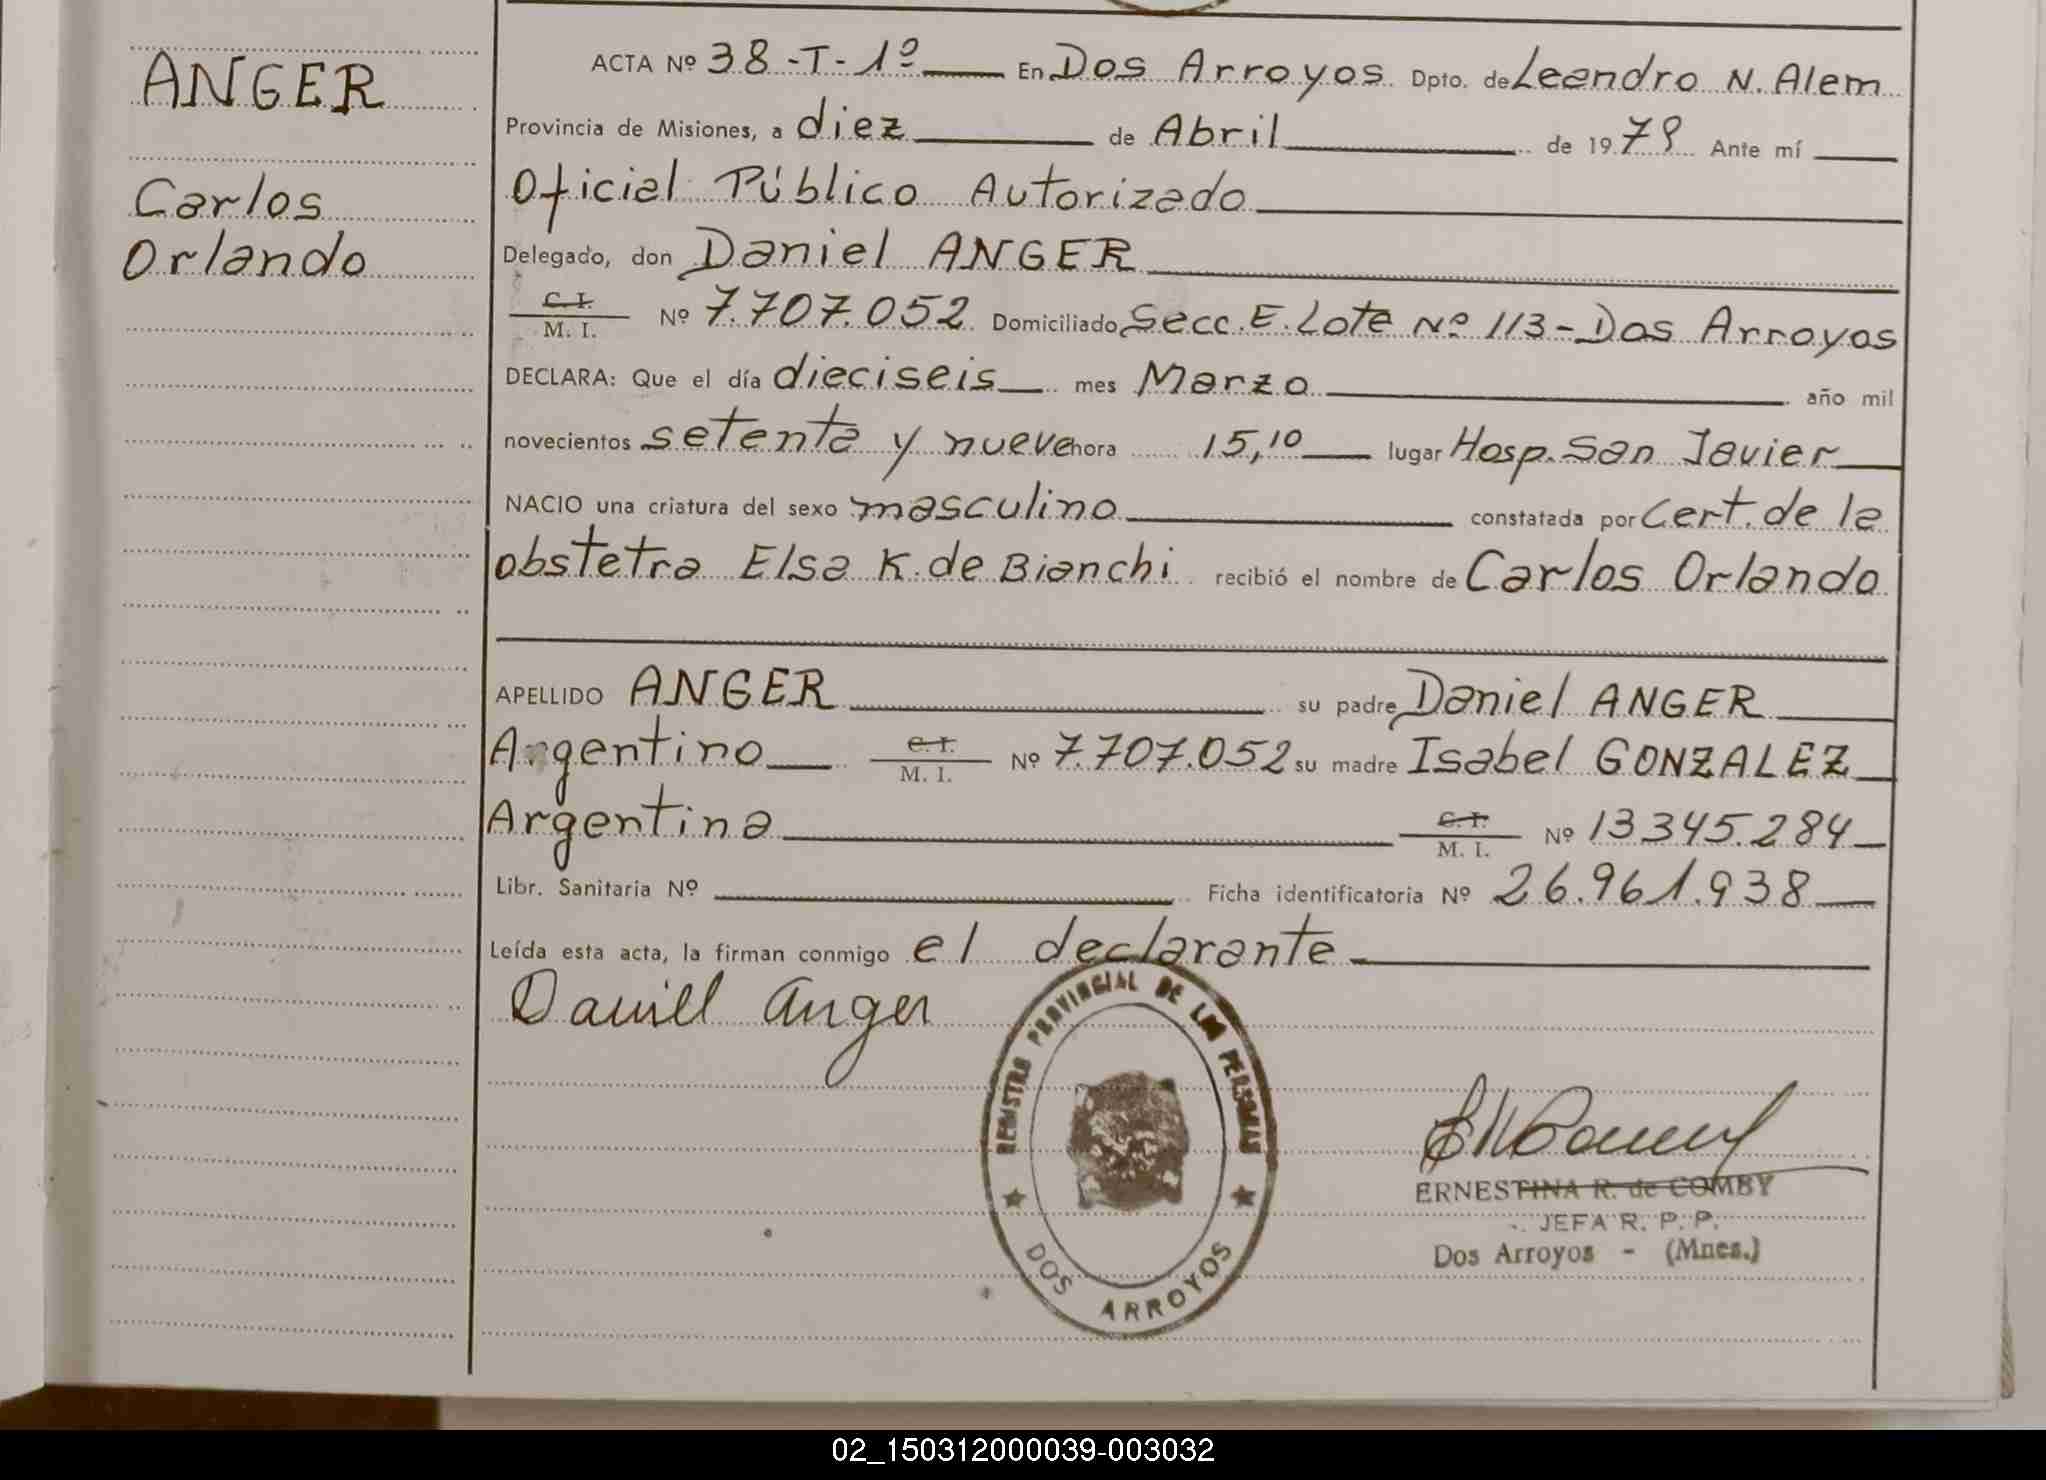 ANGER
Carlos
Orlando
ACTA Nº 38-T-1º En Dos Arroyos Dpto. de Leandro N. Alem
Provincia de Misiones, a diez de Abril de 1979 Ante mí
Oficial Público Autorizado
Delegado, don Daniel ANGER
C. I.
M. I. Nº 7.707.052 Domiciliado Secc. E. Lote Nº 113-Dos Arroyos
DECLARA: Que el día dieciseis mes Marzo año mil
novecientos setenta y nueve hora 15,10 lugar Hosp. San Javier
NACIO una criatura del sexo masculino constatada por Cert. de la
obstetra Elsa K. de Bianchi recibió el nombre de Carlos Orlando
APELLIDO ANGER su padre Daniel ANGER
Argentino C. I. M. I. Nº 7.707.052 su madre Isabel GONZALEZ
Argentina C. I. M. I. Nº 13345.284
Libr. Sanitaria Nº Ficha identificatoria Nº 26.961.938
Leída esta acta, la firman conmigo el declarante
Daniel Anger
REGISTRO PROVINCIAL DE LAS PERSONAS
DOS ARROYOS
ERNESTINA R. de COMBY
JEFA R. P. P.
Dos Arroyos - (Mnes.)
02_150312000039-003032